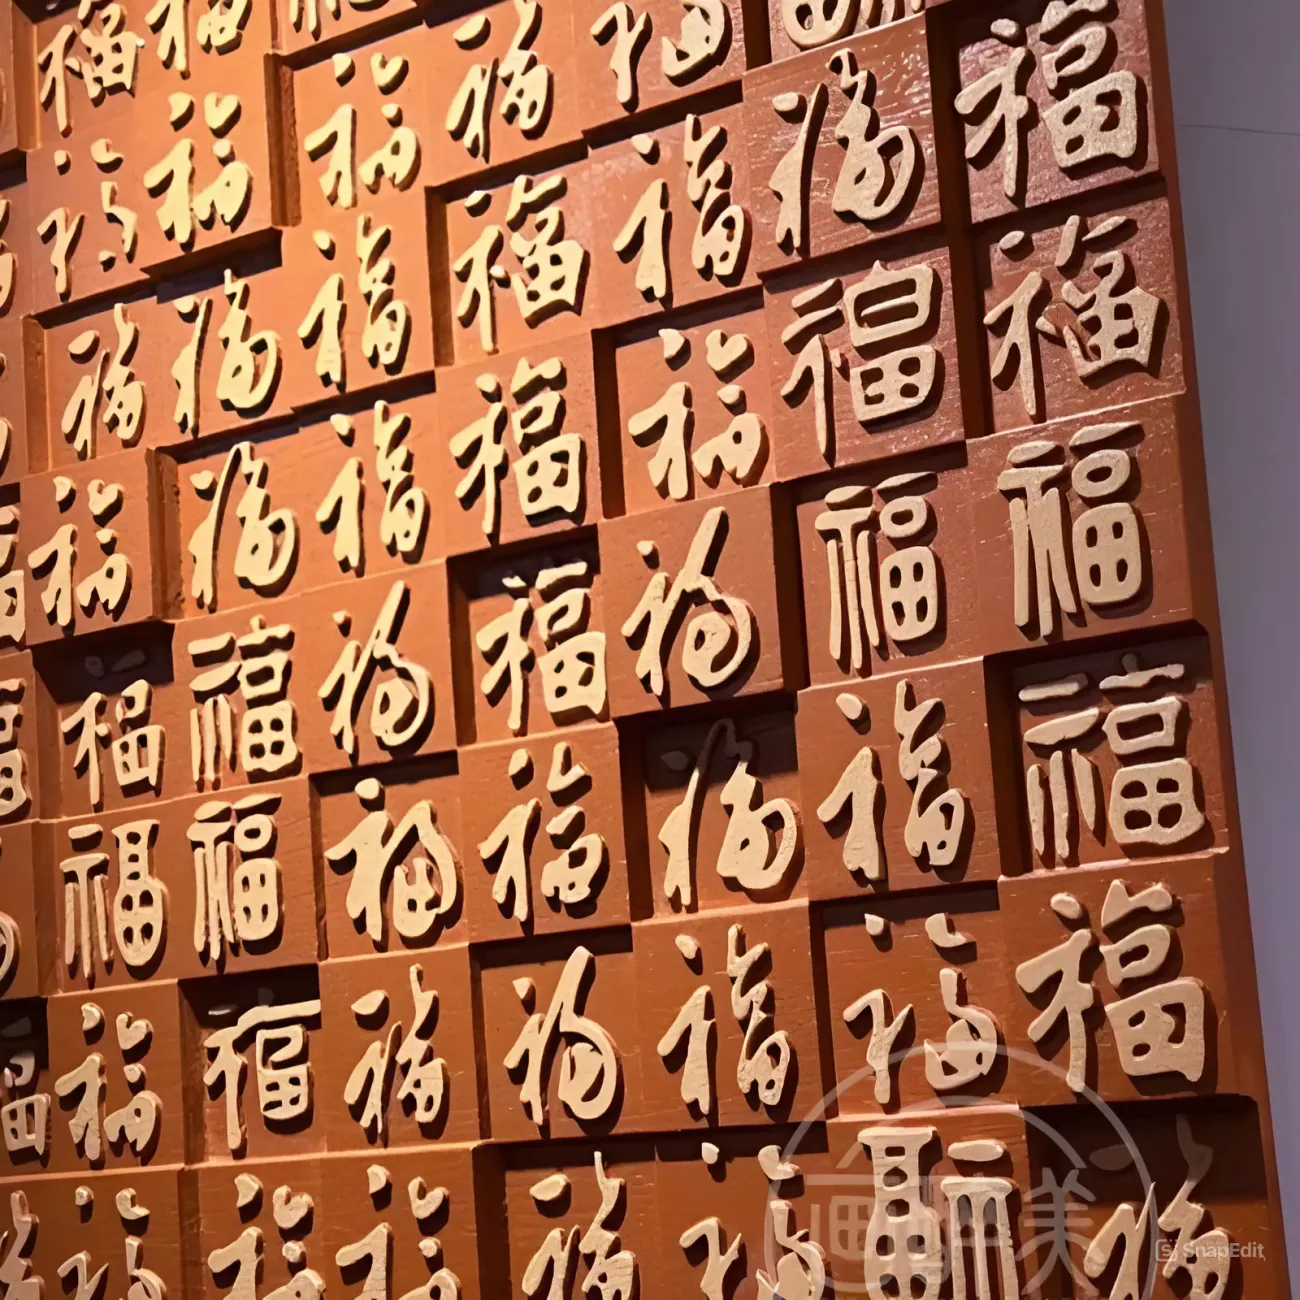 福福
福福福福福福
福福福福福福福
福福福福福福福
福福福福福福福
福福福福福福福
福福福福福福福
福福福福福福福
美
SnapEdit